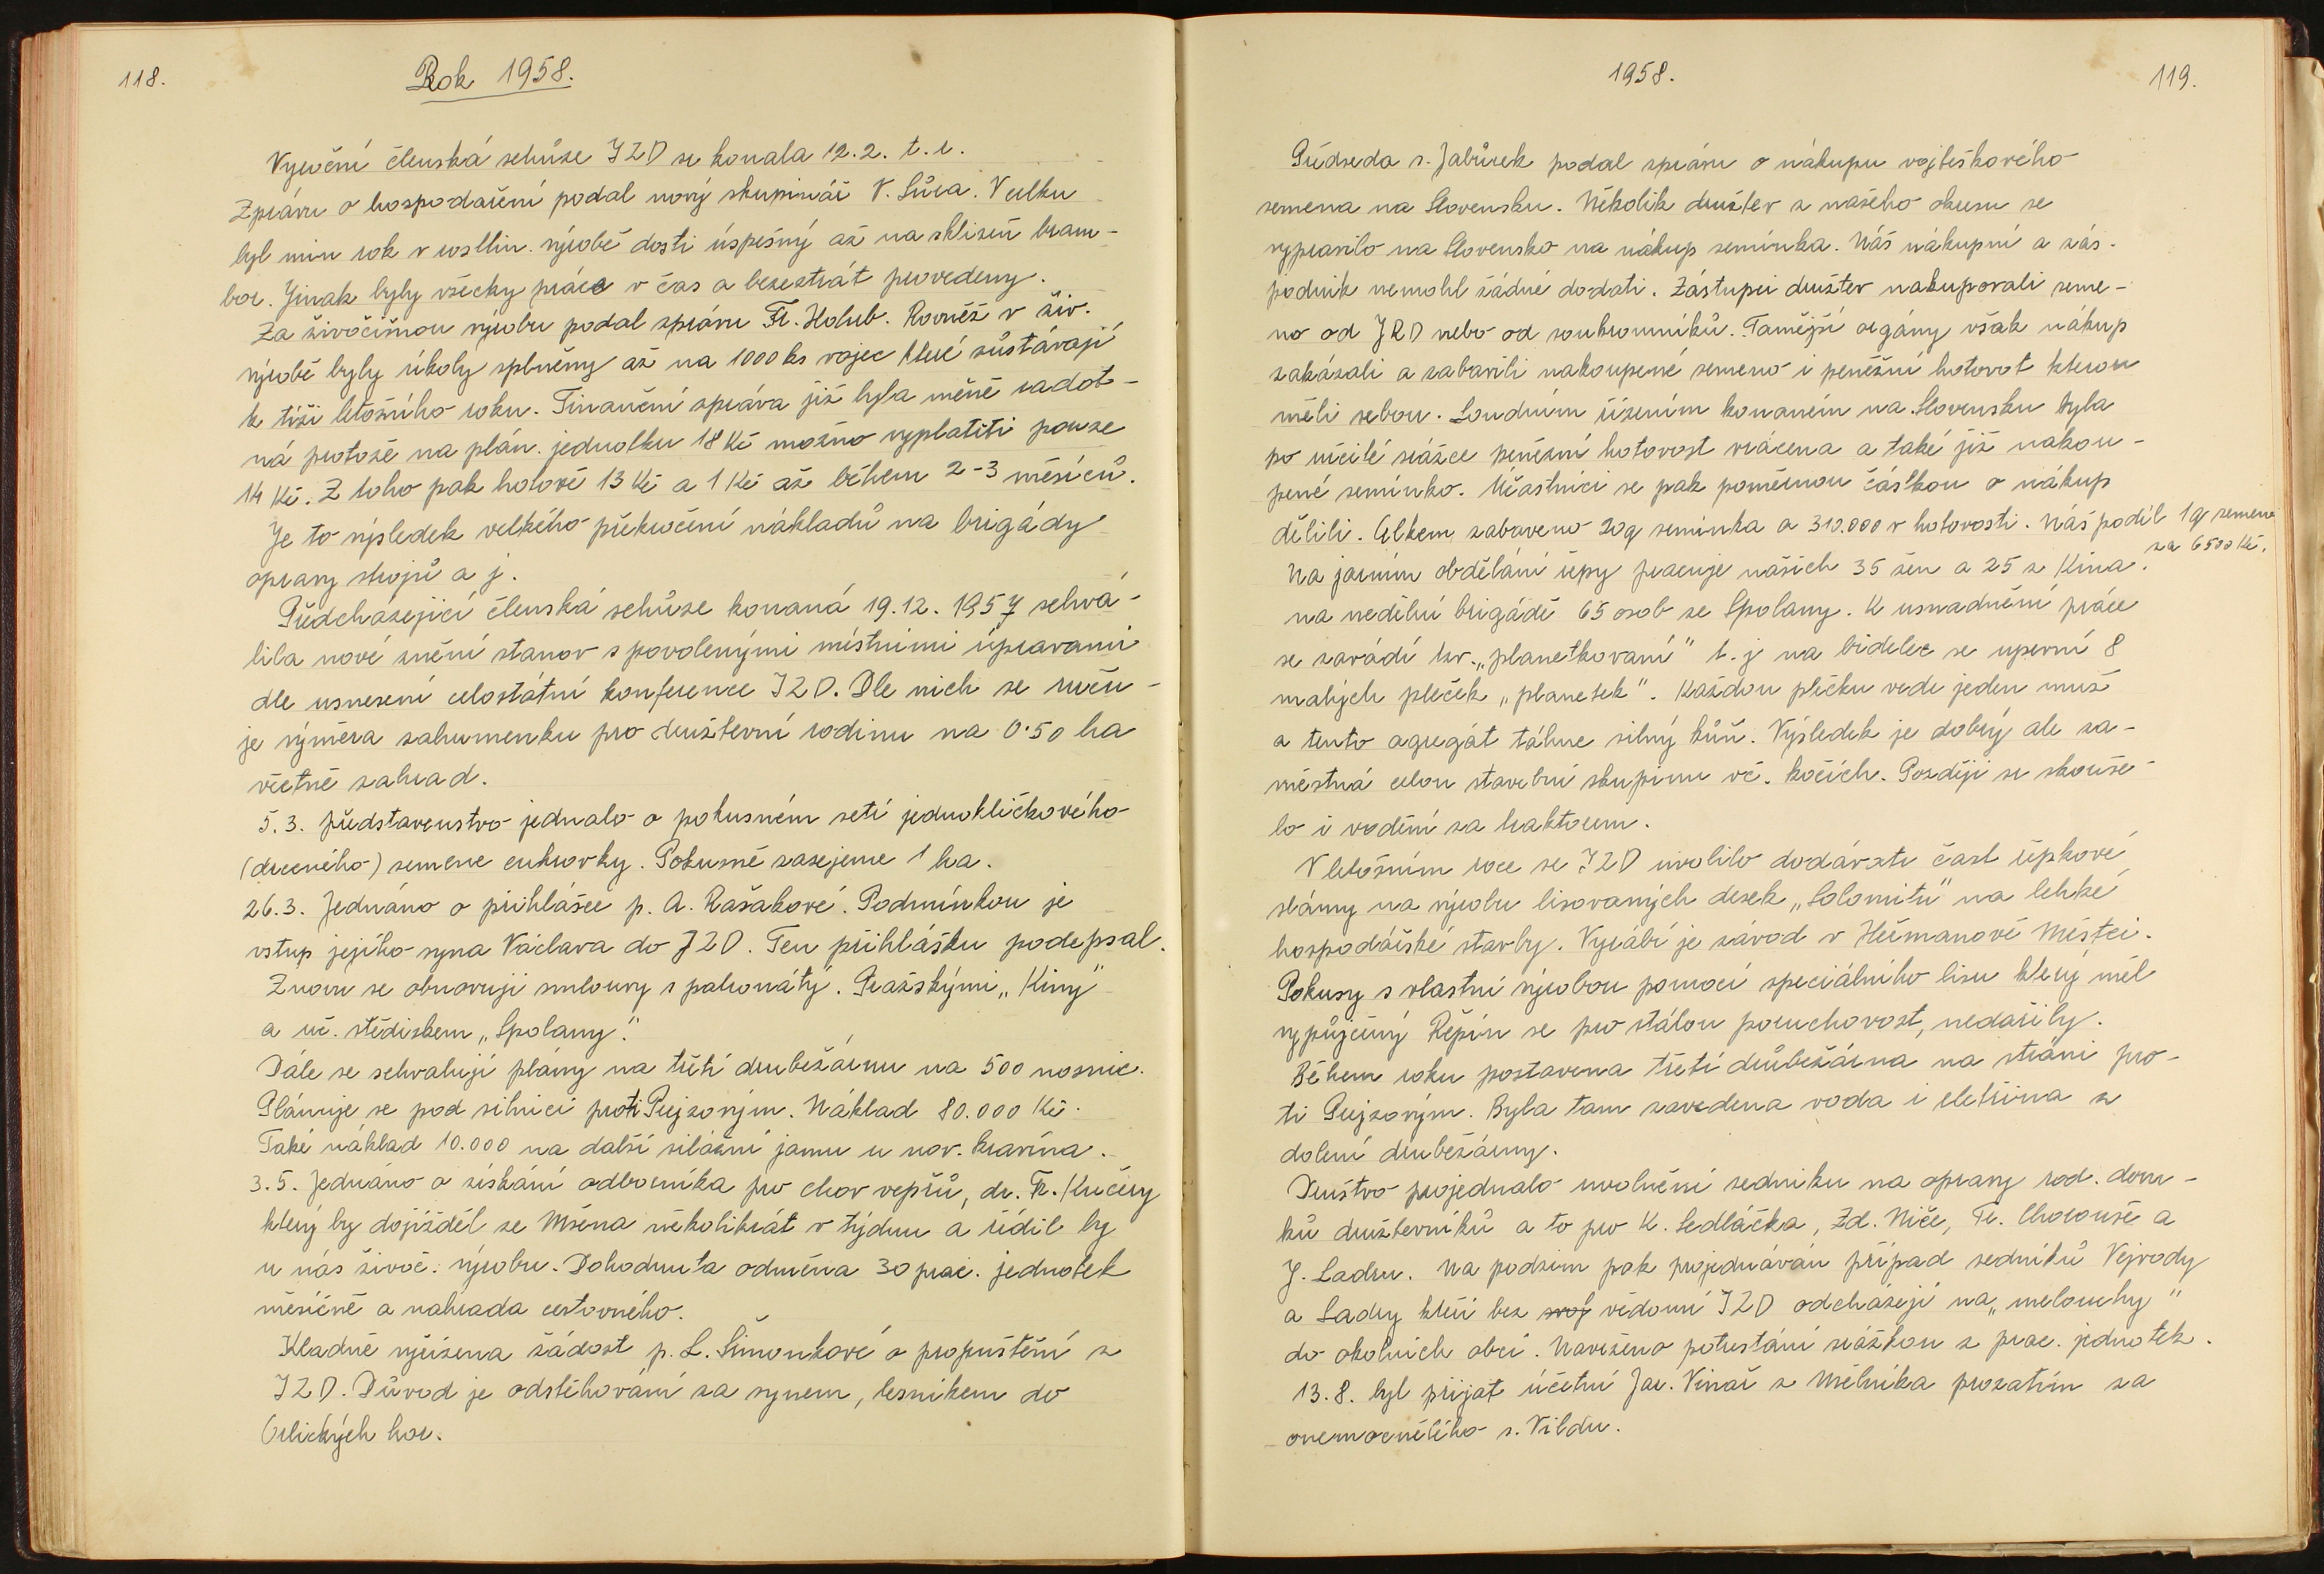 118.
Rok 1958.
Výroční členská schůze JZD se konala 12.2. t.r.
Zprávu o hospodaření podal nový skupinář V. Sůra. Vcelku
byl min rok v rostlin. výrobě dosti úspěšný až na sklizeň bram-
bor. Jinak byly všecky práce v čas a bezeztrát provedeny.
Za živočišnou výrobu podal zprávu Fr. Holub. Rovněž v živ.
výrobě byly úkoly splněny až na 1000 ks vajec které zůstávají
k tíži letošního roku. Finanční zpráva již byla méně radost-
ná protože na plán. jednotku 18 Kč možno vyplatiti pouze
14 Kč. Z toho pak hotově 13 Kč a 1 Kč až během 2-3 měsíců.
Je to výsledek velkého překročení nákladů na brigády
opravy strojů a j.
Předcházející členská schůze konaná 19.12. 1957 schvá-
lila nové znění stanov s povolenými místními úpravami
dle usnesení celostátní konference JZD. Dle nich se urču-
je výměra záhumenku pro družstevní rodinu na 0.50 ha
včetně zahrad.
5.3. představenstvo jednalo o pokusném setí jednoklíčkového
(drceného) semene cukrovky. Pokusně zasejeme 1 ha.
26.3. Jednáno o přihlášce p. A. Rašákové. Podmínkou je
vstup jejího syna Václava do JZD. Ten přihlášku podepsal.
Znovu se obnovují smlouvy s patronáty. Pražskými „Kiny"
a uč. střediskem „Spolany".
Dále se schvalují plány na třetí drubežárnu na 500 nosnic.
Plánuje se pod silnicí proti Prejzovým. Náklad 80.000 Kč.
Také náklad 10.000 na další silážní jámu u nov. kravína.
3.5. Jednáno o získání odborníka pro chov vepřů, dr. Fr. Kučery
který by dojížděl ze Mšena několikrát v týdnu a řídil by
u nás živoč. výrobu. Dohodnuta odměna 30 prac. jednotek
měsíčně a nahrada cestovného.
Kladně vyřízena žádost p. L. Šimonkové o propuštění z
JZD. Důvod je odstěhování za synem, lesníkem do
Orlických hor.
1958.
119.
Předseda s. Jabůrek podal zprávu o nákupu vojteškového
semena na Slovensku. Několik družstev z našeho okresu se
vypravilo na Slovensko na nákup semínka. Náš nákupní a zás.
podnik nemohl žádné dodati. Zástupci družstev nakupovali seme-
no od JRD nebo od soukromníků. Tamější orgány však nákup
zakázali a zabavili nakoupené semeno i peněžní hotovot kterou
měli sebou. Soudním řízením konaném na Slovensku byla
po určité srážce peněžní hotovost vrácena a také již nakou-
pené semínko. Účastníci se pak poměrnou částkou o nákup
dělili. Celkem zabaveno 20q semínka a 310.000 v hotovosti. Náš podíl 1q semene
za 6500 Kč.
Na jarním obdělání řepy pracuje našich 35 žen a 25 z Kina.
na nedělní brigádě 65 osob ze Spolany. K usnadnění práce
se zavádí tzv. „planetkovaní" t. j na bidelec se upevní 8
malých pleček „planetek". Každou plečku vede jeden muž
a tento agregát táhne silný kůň. Výsledek je dobrý ale za-
městná celou stavební skupinu vč. kočích. Později se skouše-
lo i vodění za traktorem.
V letošním roce se JZD uvolilo dodávati část řepkové
slámy na výrobu lisovaných desek „Solomitu" na lehké
hospodářské stavby. Vyrábí je závod v Heřmanově Městci.
Pokusy s vlastní výrobou pomocí speciálního lisu který měl
vypůjčený Řepín se pro stálou poruchovost, nedařily.
Během roku postavena třetí drůbežárna na stráni pro-
ti Prejzovým. Byla tam zavedena voda i eletřina z
dolení drubežárny.
Društvo projednalo uvolnění zedníku na opravy rod. dom-
ků družstevníků a to pro K. Sedláčka, Zd. Niče, Fr. Chorouše a
J. Ladru. Na podzim pak projednáván případ zedníků Vejvody
a Ladry kteří bez svoj vědomí JZD odcházejí na „melouchy"
do okolních obcí. Navrženo potrestání srážkou z prac. jednotek.
13.8. byl přijat účetní Jar. Vinař z Mělníka prozatím za
onemocnělého s. Vildu.